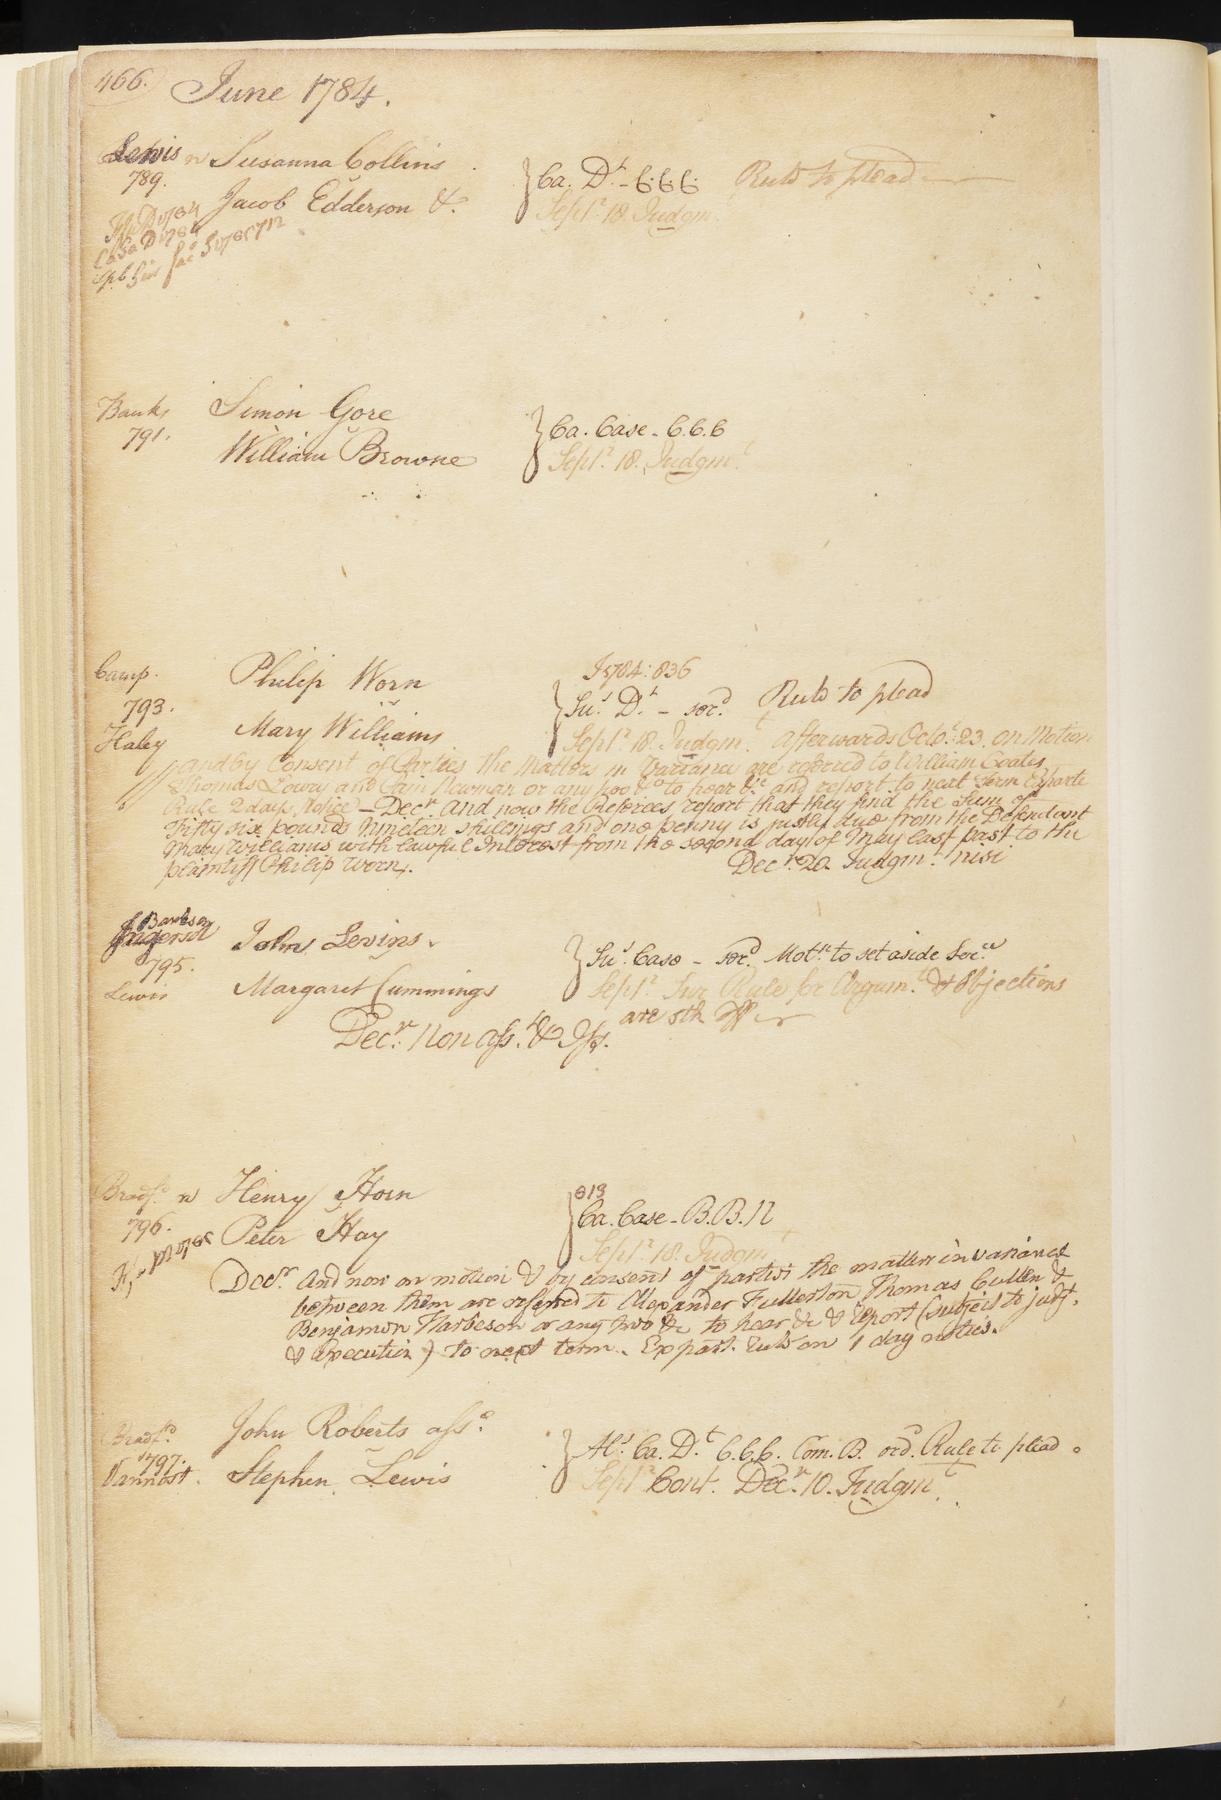 466. June 1784.
Lewis n Susanna Collins
789.
Ca. Dt. - C.C.C. Ruld to plead
Jacob Edderson &.
Septr. 18. Judgmt.
Banks Simon Gore
791.
Ca. Case - C.C.C
William Browne
Septr. 18. Judgmt.
Camp. Philip Worn
J 1784: 836
793.
Sus. Dt. - socd. Ruld to plead
Haley Mary Williams
Septr. 18. Judgmt. afterwards Octor. 23. on Motion
and by Consent of Parties the Matters in Variance are referred to William Coates,
Thomas Lowry and Newman or any two &c to hear &c and report to next Term Exparte
Rule 2 days Notice - Decr. And now the Referees report that they find the Sum of
Fifty six pounds Nineteen shillings and one penny is justly due from the Defendant
Mary Williams with lawful Interest from the second day of May last past to the
plaintiff Philip Worn.
Decr. 20. Judgmt. nisi
Bankson
Ingersol John Levins.
795.
Sus. Case - socd. Motn. to set aside Socce
Lewis Margaret Cummings
Septr. Sur Rule for Argumt. & Objections
are oth
Decr. Non asst. & Iss.
Bradfd. n Henry Horn
813
796.
Ca. Case - B.B. 12
Peter Hay
Septr. 18. Judgmt
Decr. And now on motion & by consent of parties the matters in variance
between them are referred to Alexander Fullerton Thomas Cullen &
Benjamin Harbeson or any two &c to hear &c & report (subject to judgt.
& Execution) to next term. Expart. Rule on 1 day notice.
Bradfd. John Roberts asse.
797.
Als. Ca. Dt. C.C.C. Com. B. ord. Rule to plead
Vannost. Stephen Lewis
Septr. Cont. Decr. 10. Judgmt.